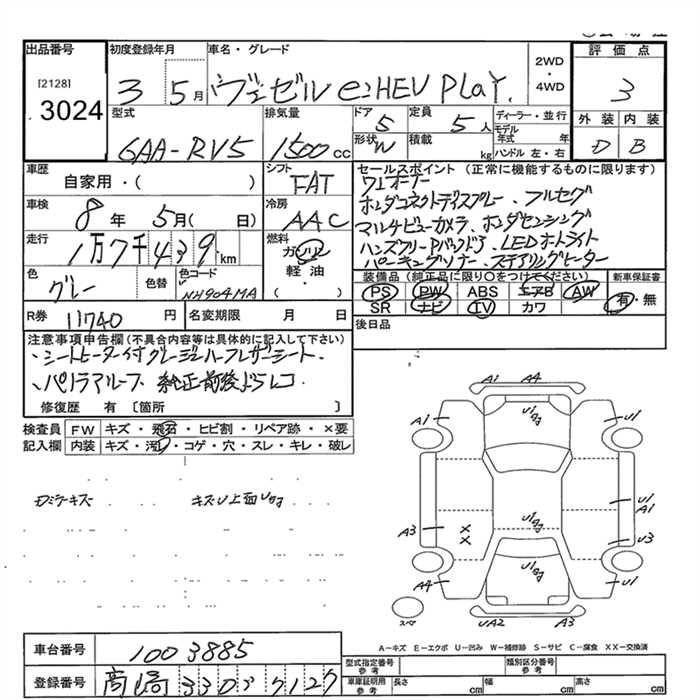 出品番号
[2128]
3024
初度登録年月
3 5月
車名・グレード
ヴェゼル e:HEV PLaY
2WD
・
4WD
評価点
3
型式
6AA-RV5
排気量
1500cc
ドア
5
定員
5人
形状
W
積載
kg
ディーラー・並行
モデル年式 年
ハンドル 左・右
外装 内装
D B
車歴
自家用・( )
シフト
FAT
セールスポイント (正常に機能するものに限ります)
ワンオーナー
ホンダコネクトディスプレー、フルセグ
マルチビューカメラ、ホンダセンシング
ハンズフリーPバックドア、LEDオートライト
パーキングソナー、ステアリングヒーター
車検
8年 5月( 日)
冷房
AAC
走行
1万7千439km
燃料
ガソリン
軽油・
( )
色
グレー
色替
色コード
NH904MA
装備品 (純正品に限り○をつけてください)
PS PW ABS エアB AW
SR ナビ TV カワ
新車保証書
有・無
R券 11740円
名変期限 月 日
後日品
注意事項申告欄(不具合内容等は具体的に記入して下さい)
・シートヒーター付グレージュハーフレザーシート、
・パノラマルーフ 純正前後ドラレコ
修復歴 有 〔箇所 〕
検査員
記入欄
FW キズ・飛石・ヒビ割・リペア跡・×要
内装 キズ・汚れ・コゲ・穴・スレ・キレ・破レ
Dミラーキズ
A1 A4
A1 U1
U1
A1
A3 U3
×
×
A4 U1
UA2 A3
スペア
A-キズ E-エクボ U-凹み W-補修跡 S-サビ C-腐食 XX-交換済
車台番号 1003885
登録番号 高崎 330 ヌ 7127
型式指定番号
参考
類別区分番号
参考
車庫証明用
参考
長さ cm
幅 cm
高さ cm